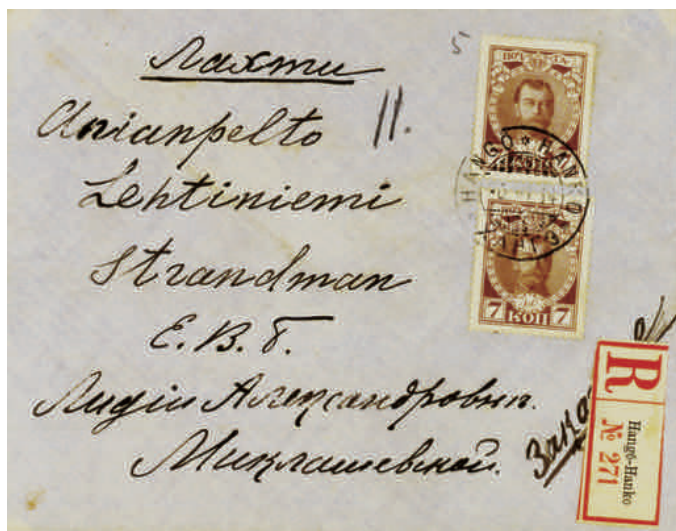 Лахти
5
11.
Anianpelto
Lehtiniemi
Strandman
Е. В. Б.
Лидіи Александровнѣ.
Миклашевской.
HANGÖ * HANKO
ГАНГЭ
7 КОП 7
R
Hangö-Hanko
№ 271